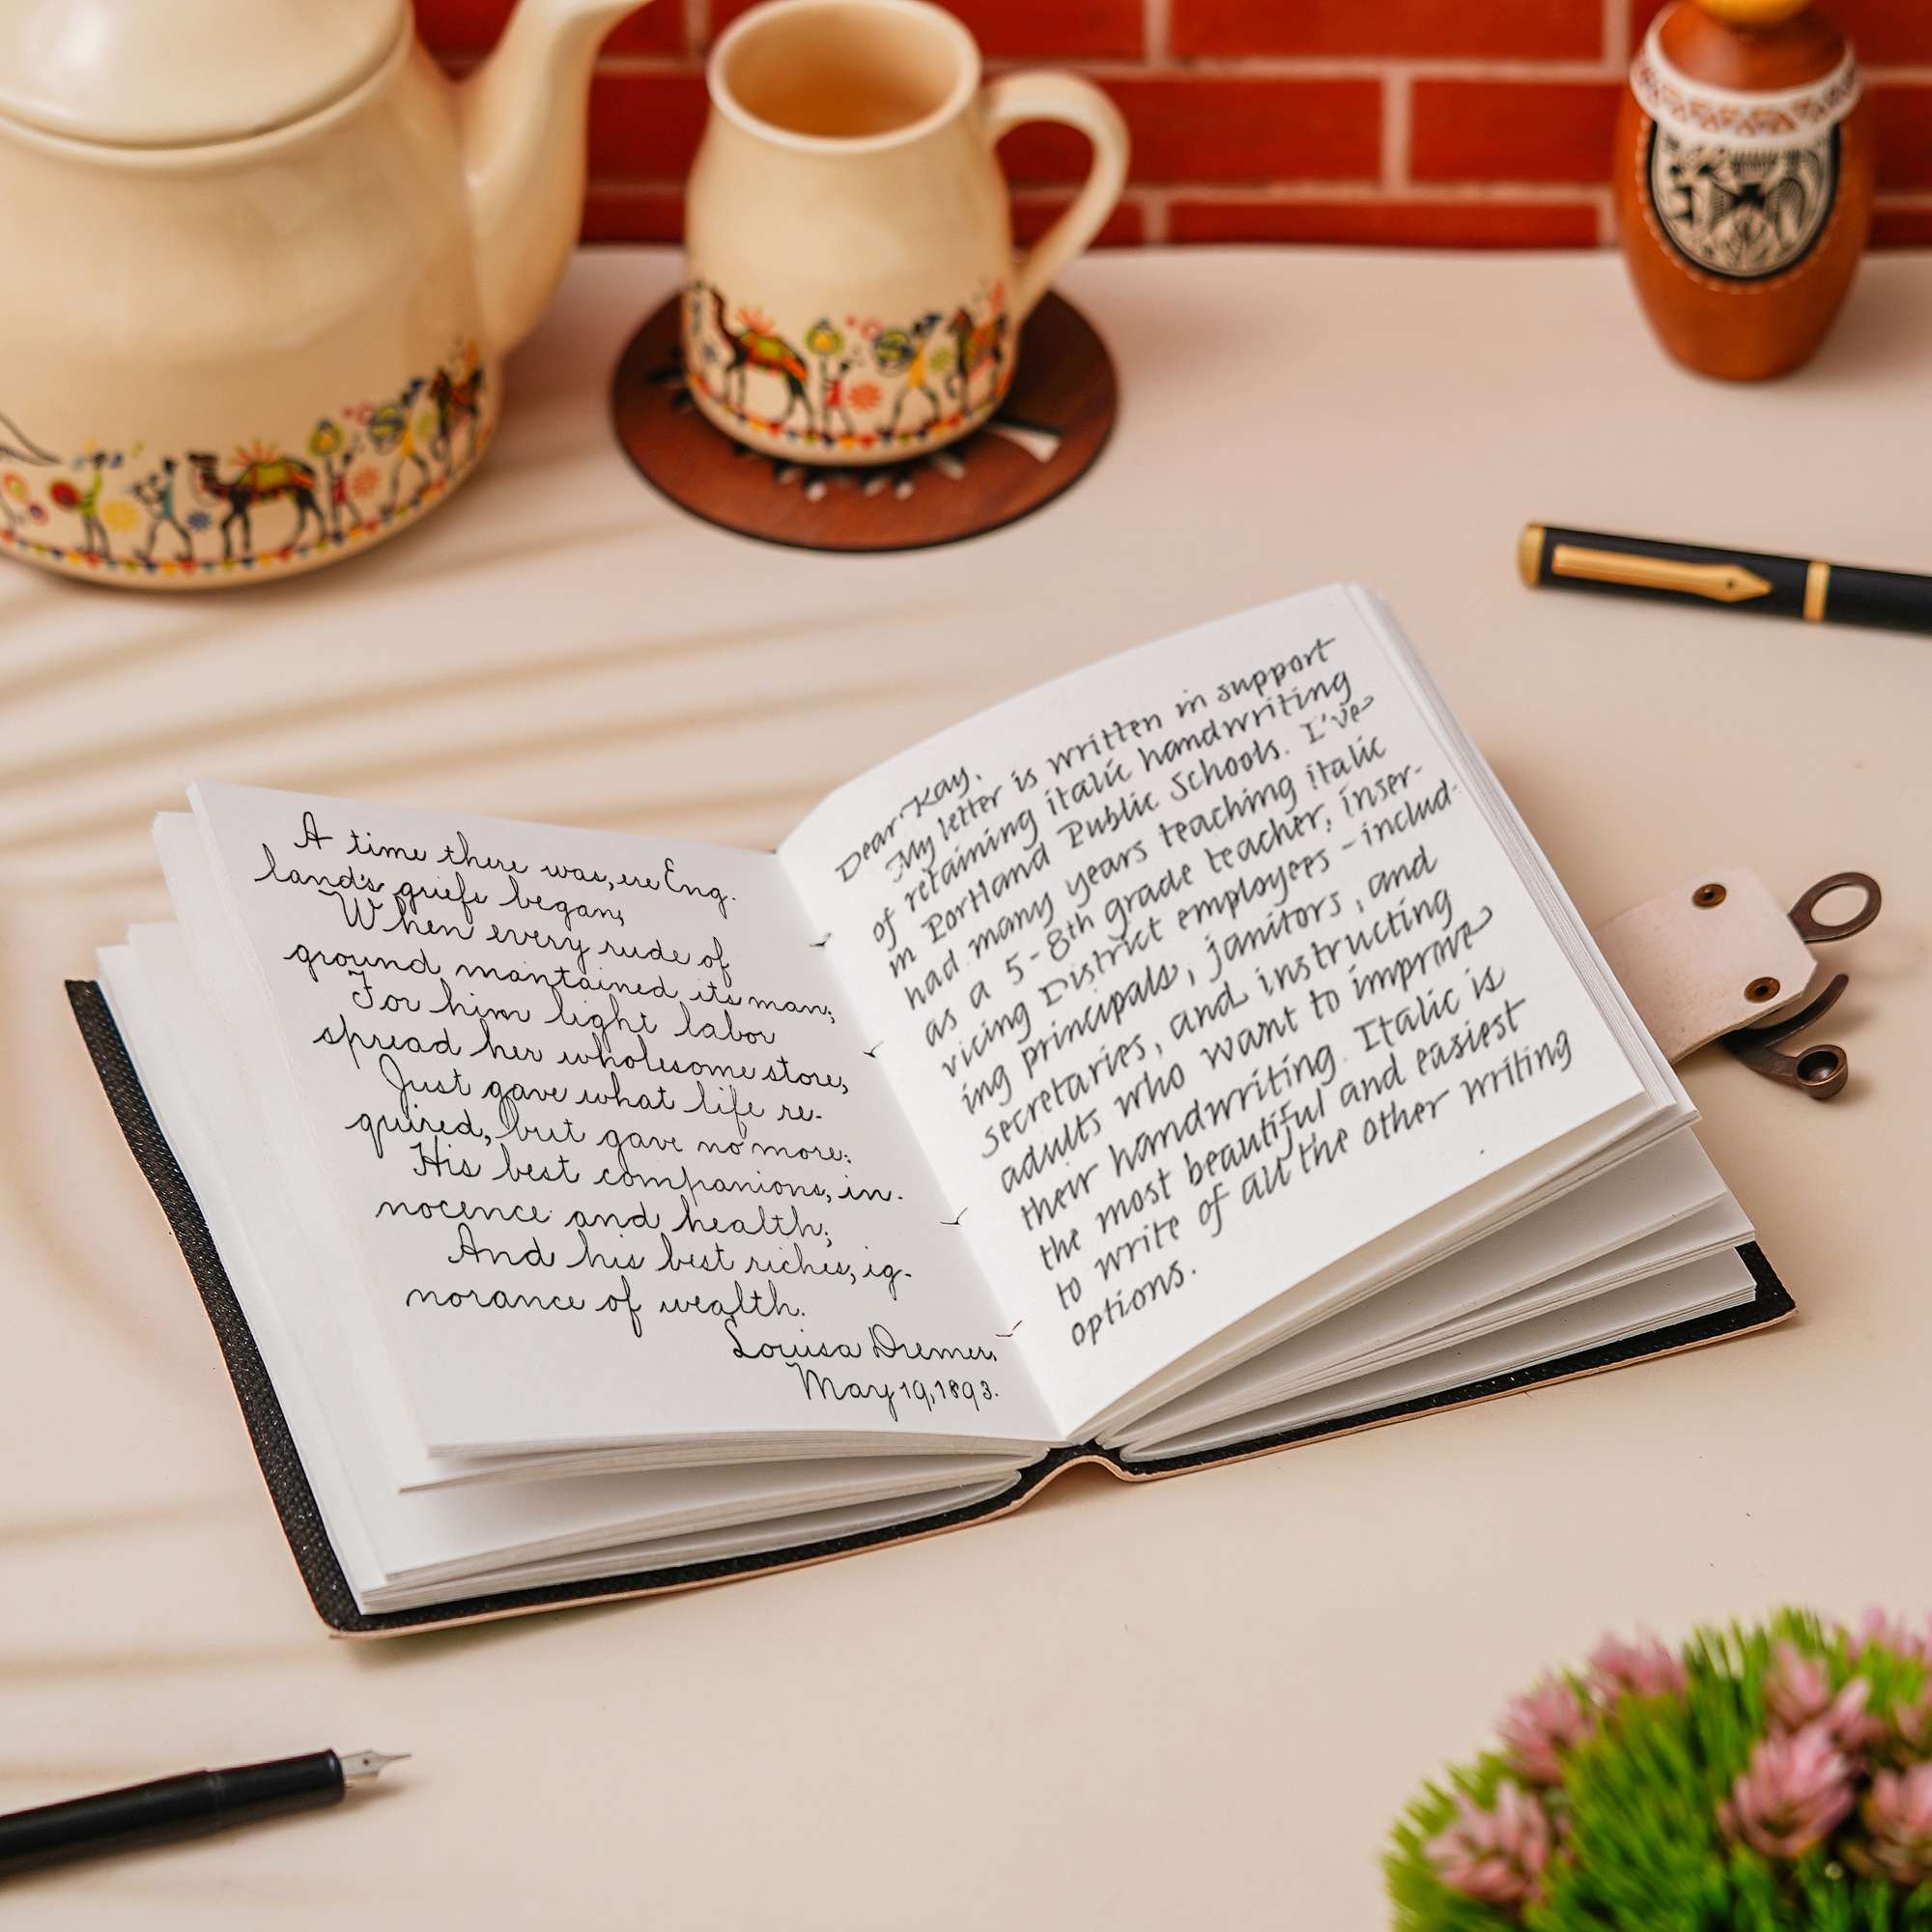 A time there was, ere Eng-
land's griefs began,
When every rude of
ground maintained its man;
For him light labor
spread her wholesome store,
Just gave what life re-
quired, but gave no more:
His best companions, in-
nocence and health;
And his best riches, ig-
norance of wealth.
Louisa Diemer,
May 19, 1893.
Dear Kay,
My letter is written in support
of retaining italic handwriting
in Portland Public Schools. I've
had many years teaching italic
as a 5-8th grade teacher, inser-
vicing District employees - includ-
ing principals, janitors, and
secretaries, and instructing
adults who want to improve
their handwriting. Italic is
the most beautiful and easiest
to write of all the other writing
options.